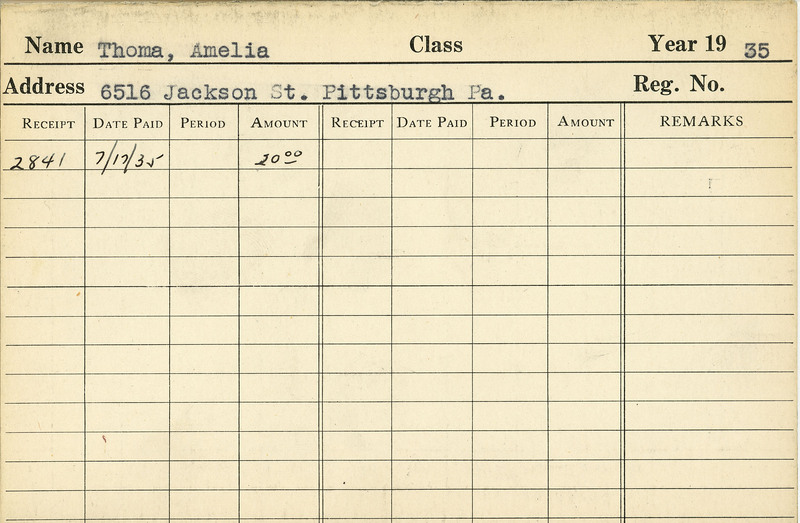 Name Thoma, Amelia Class Year 19 35
Address 6516 Jackson St. Pittsburgh Pa. Reg. No.
RECEIPT DATE PAID PERIOD AMOUNT RECEIPT DATE PAID PERIOD AMOUNT REMARKS
2841 7/17/35 20 00